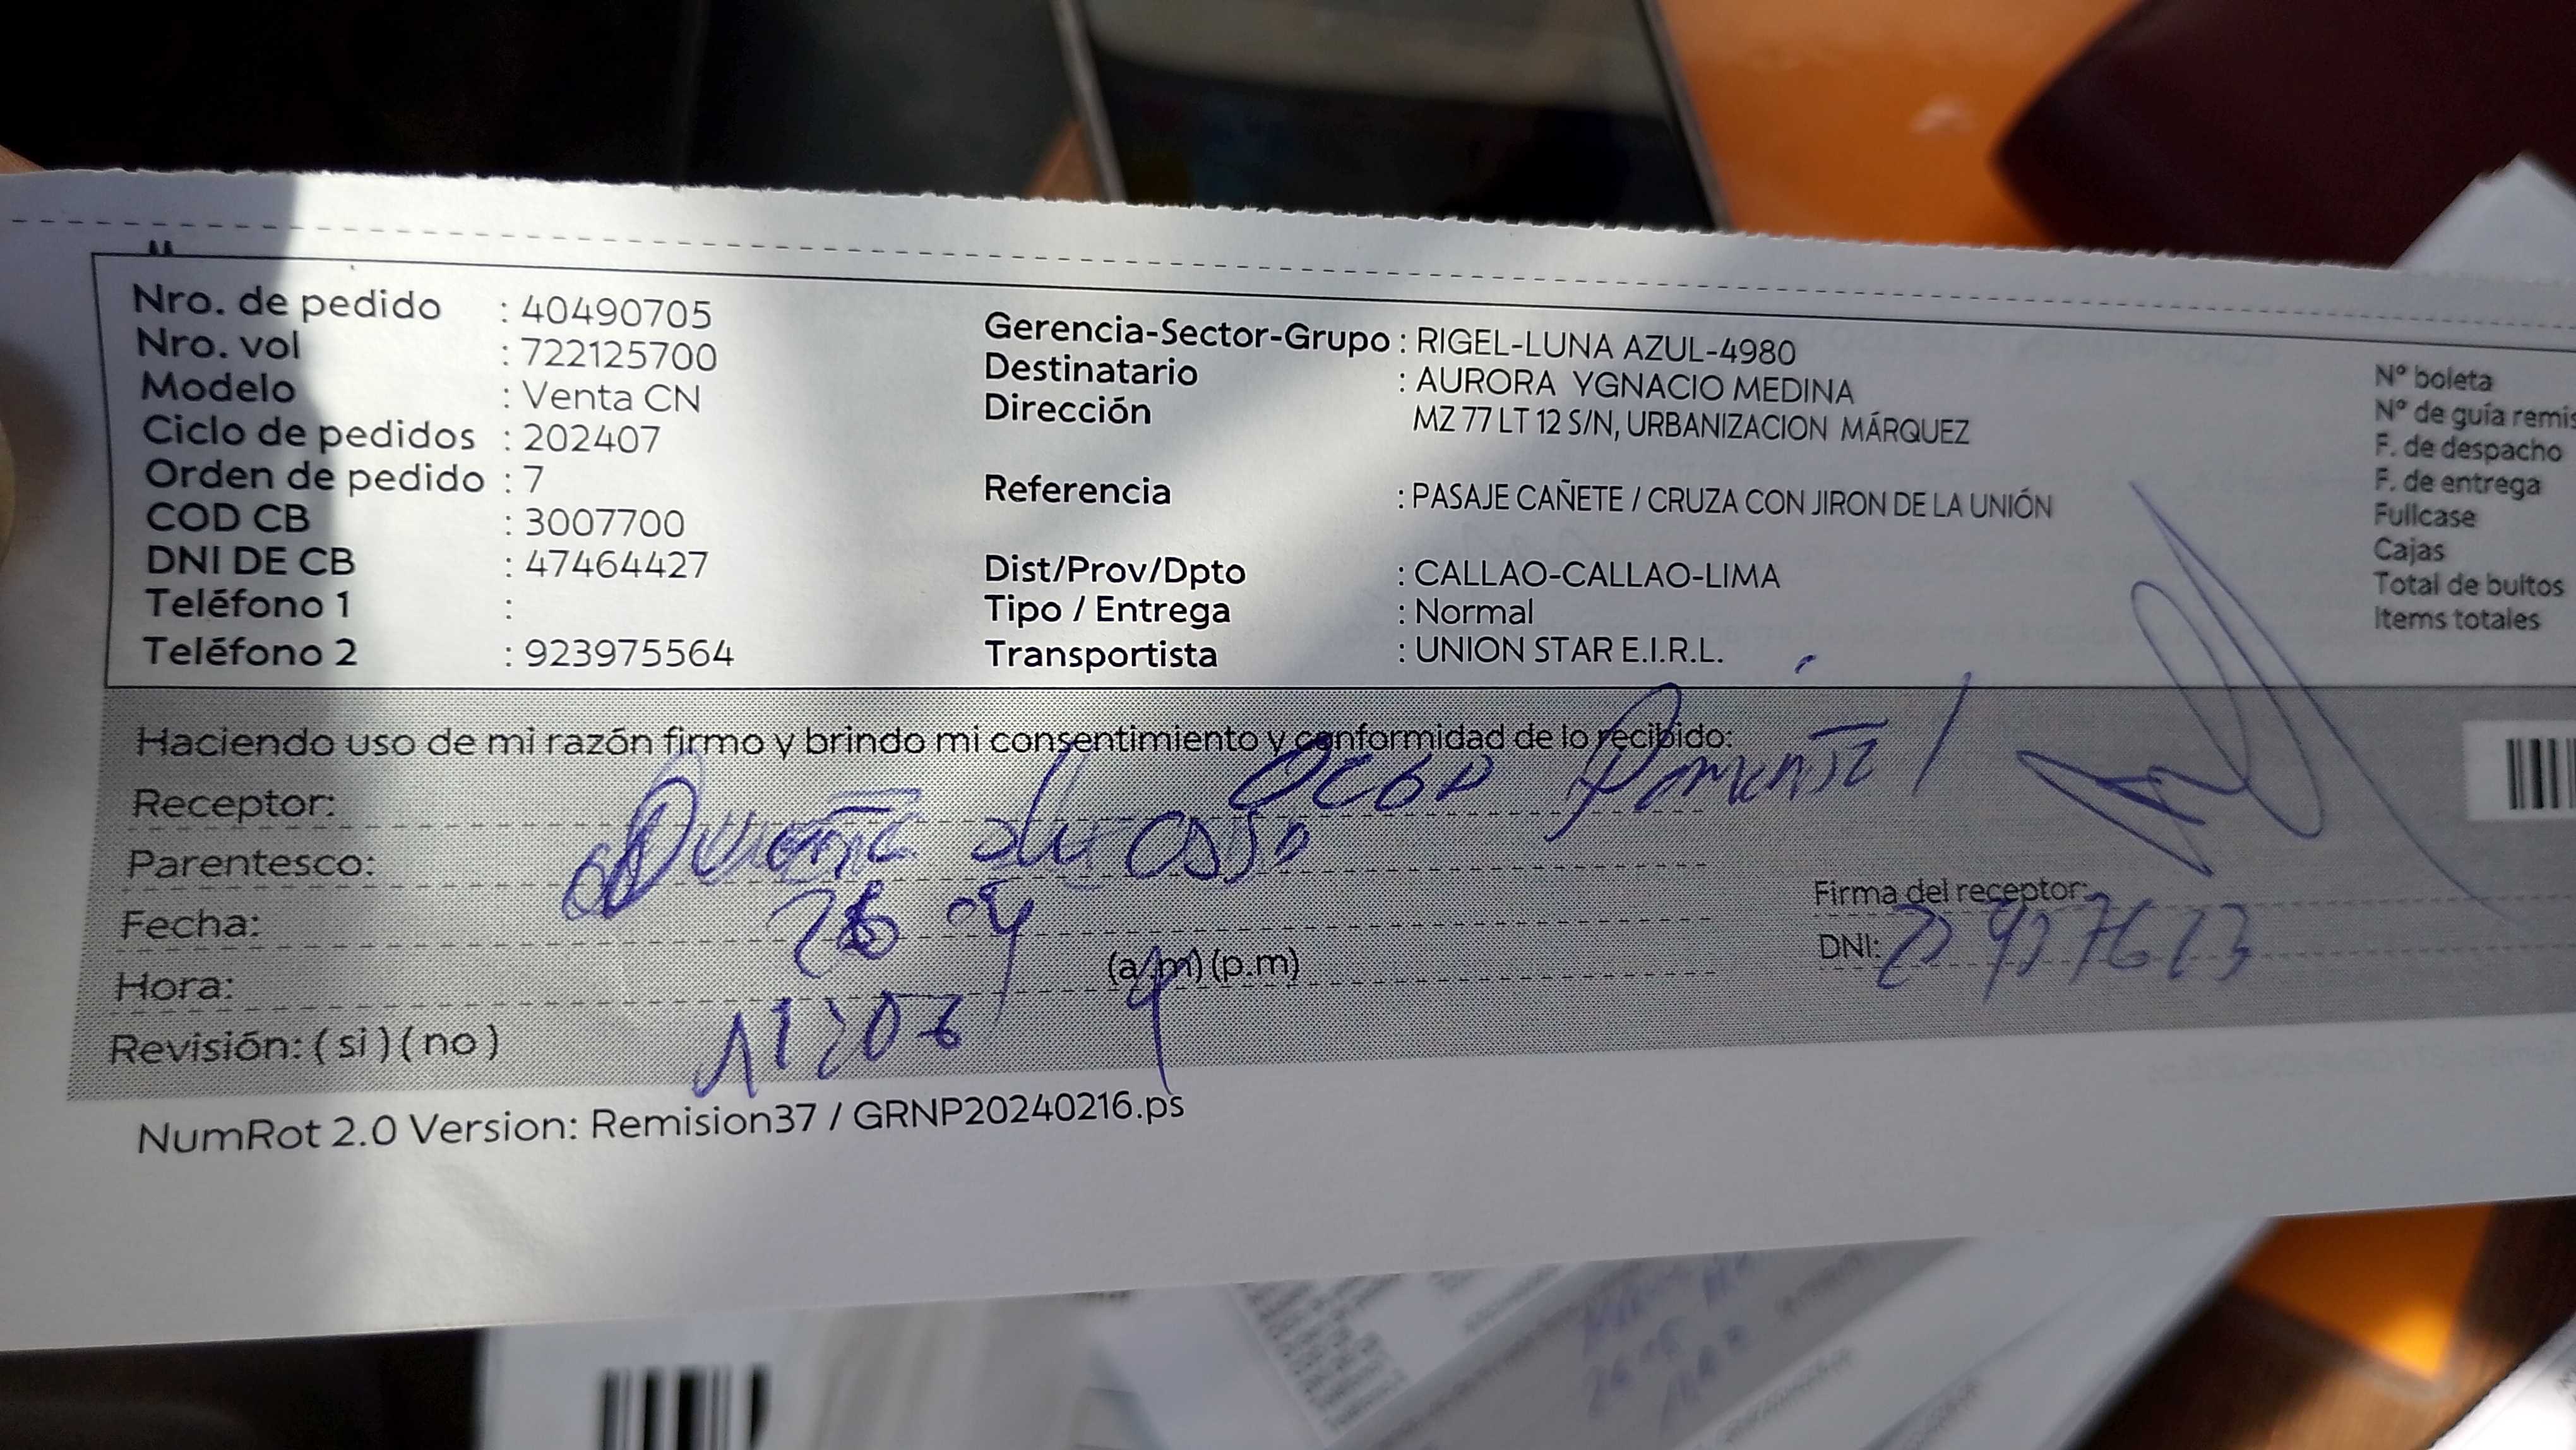 Nro. de pedido : 40490705
Nro. vol : 722125700
Modelo : Venta CN
Ciclo de pedidos : 202407
Orden de pedido : 7
COD CB : 3007700
DNI DE CB : 47464427
Teléfono 1 :
Teléfono 2 : 923975564
Gerencia-Sector-Grupo : RIGEL-LUNA AZUL-4980
Destinatario : AURORA YGNACIO MEDINA
Dirección MZ 77 LT 12 S/N, URBANIZACION MÁRQUEZ
Referencia : PASAJE CAÑETE / CRUZA CON JIRON DE LA UNIÓN
Dist/Prov/Dpto : CALLAO-CALLAO-LIMA
Tipo / Entrega : Normal
Transportista : UNION STAR E.I.R.L.
N° boleta
N° de guía remis
F. de despacho
F. de entrega
Fullcase
Cajas
Total de bultos
Items totales
Haciendo uso de mi razón firmo y brindo mi consentimiento y conformidad de lo recibido:
Receptor:
Parentesco:
Fecha: 26 04
Hora: (a.m) (p.m)
Revisión: ( si ) ( no )
Firma del receptor:
DNI:
NumRot 2.0 Version: Remision37 / GRNP20240216.ps